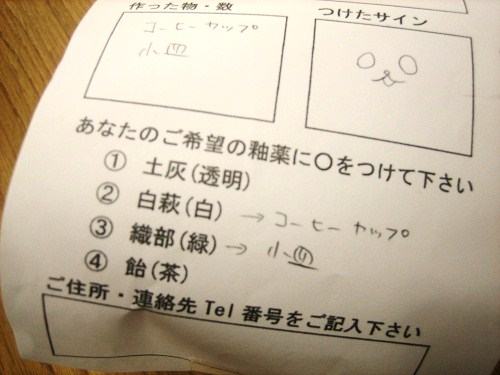 作った物・数
つけたサイン
コーヒーカップ
小皿
あなたのご希望の釉薬に〇をつけて下さい
① 土灰(透明)
② 白萩(白) → コーヒーカップ
③ 織部(緑) → 小皿
④ 飴(茶)
ご住所・連絡先 Tel 番号をご記入下さい